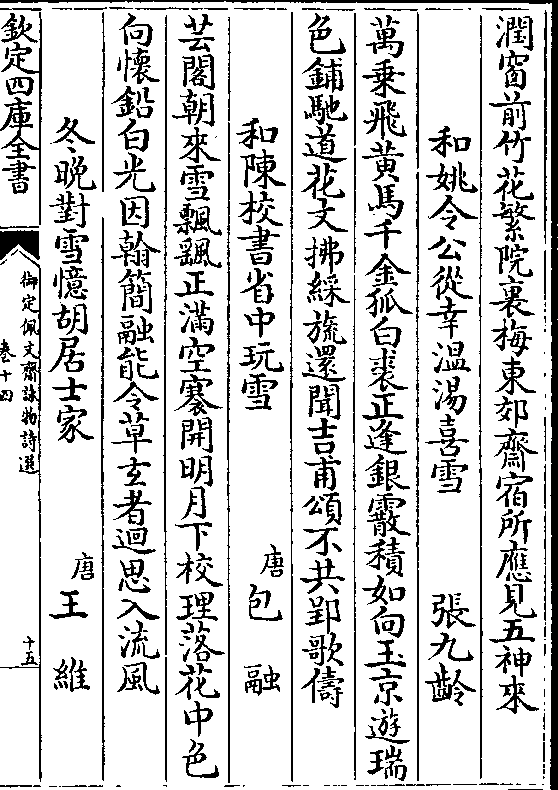 潤窗前竹花繁院裏梅東郊齋宿所應見五神來
和姚令公從幸溫湯喜雪
張九齡
萬乗飛黃馬千金狐白裘正逢銀霰積如向玉京遊瑞
色鋪馳道花文拂綵旒還聞吉甫頌不共郢歌儔
和陳校書省中玩雪
唐
包融
芸閣朝來雪飄颻正滿空褰開明月下校理落花中色
向懷鉛白光因翰簡融能令草𤣥者迴思入流風
冬晚對雪憶胡居士家
唐
王維
欽定四庫全書
御定佩文齋詠物詩選
卷十四
十五